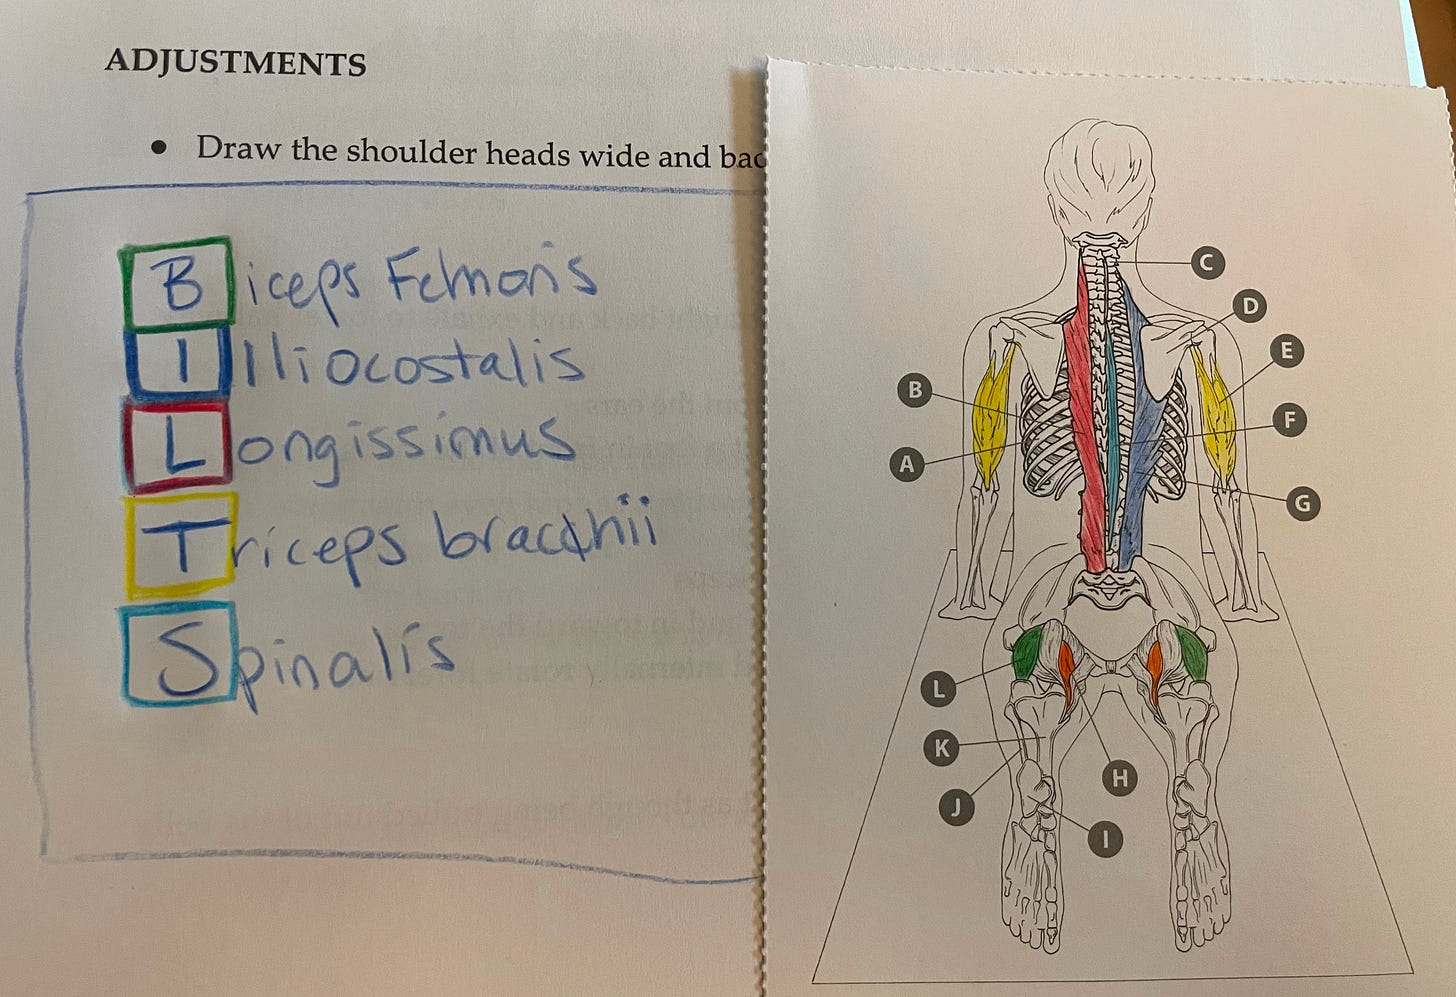 ADJUSTMENTS
• Draw the shoulder heads wide and bac
Biceps Femoris
Illiocostalis
Longissimus
Triceps brachii
Spinalis
C
D
E
B
F
A
G
L
K
H
J
I